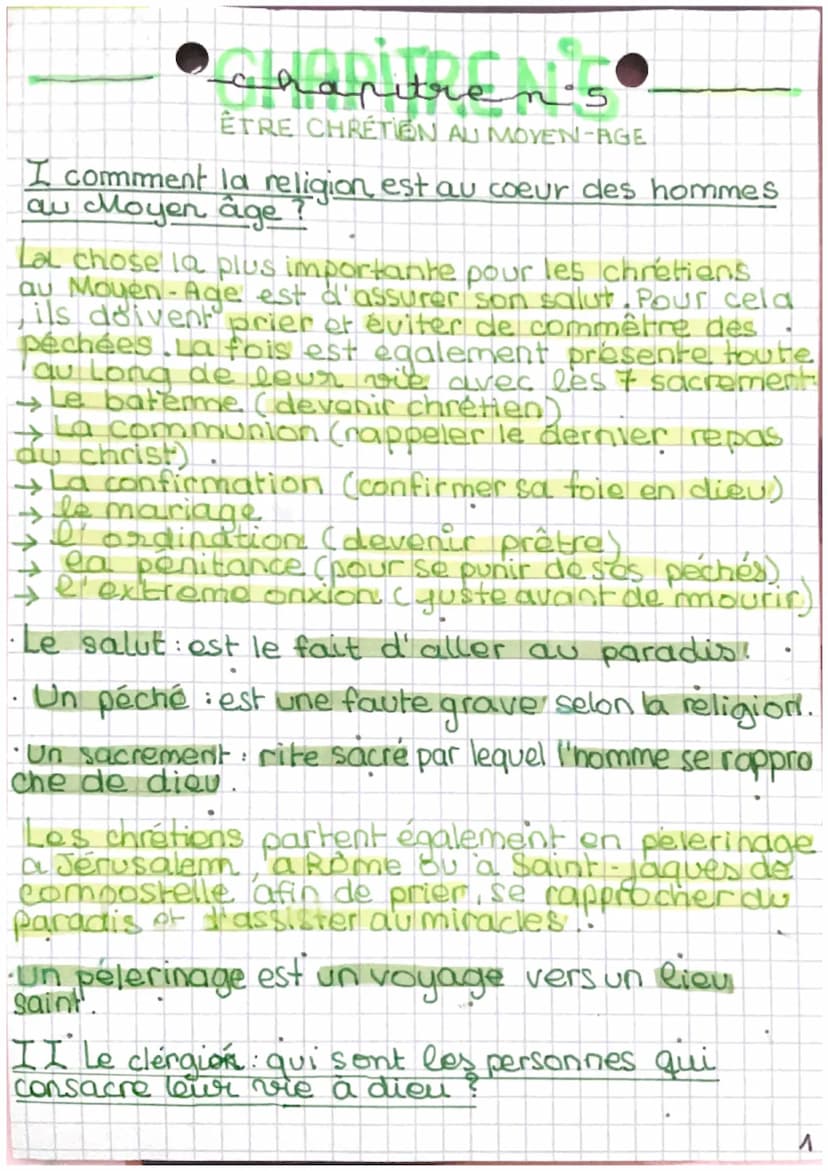 CHAPITRE N°5
chapitre n°5
ÊTRE CHRÉTIEN AU MOYEN-AGE
I comment la religion est au coeur des hommes
au Moyen âge ?
La chose la plus importante pour les chrétiens
au Moyen-Age est d'assurer son salut. Pour cela
, ils doivent prier et éviter de commêtre des
péchées. La fois est egalement présente toute
au Long de leur vie avec les 7 sacrement
→ Le bâtême (devenir chrétien)
→ La communion (rappeler le dernier repas
du christ).
→ La confirmation (confirmer sa foie en dieu)
→ le mariage
→ l'ordination (devenir prêtre)
→ La pénitance (pour se punir de ses péchés)
→ l'extreme onxion (juste avant de mourir)
· Le salut : est le fait d'aller au paradis.
· Un péché : est une faute grave selon la religion.
· Un sacrement : rite sacré par lequel l'homme se rappro
che de dieu.
Les chrétiens partent également en pelerinage
a Jérusalem, a Rome ou à Saint-jaques de
compostelle afin de prier, se rapprocher du
paradis et d'assister au miracles.
· un pélerinage est un voyage vers un lieu
saint.
II Le clérgion : qui sont les personnes qui
consacre leur vie à dieu ?
1